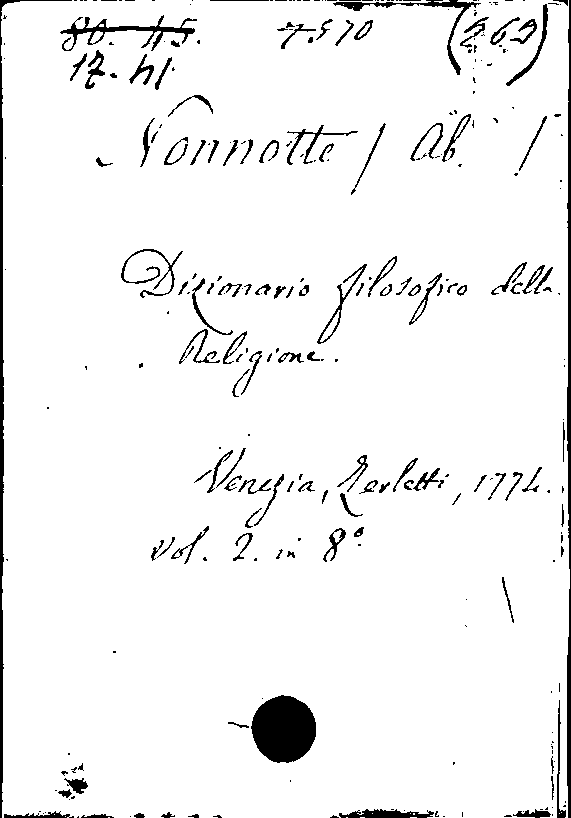 80. 45. 7570 (262)
17. 41.
Nonnotte / Ab. /
Dizionario filosofico della
Religione.
Venezia, Zerletti, 1774.
vol. 2. in 8°